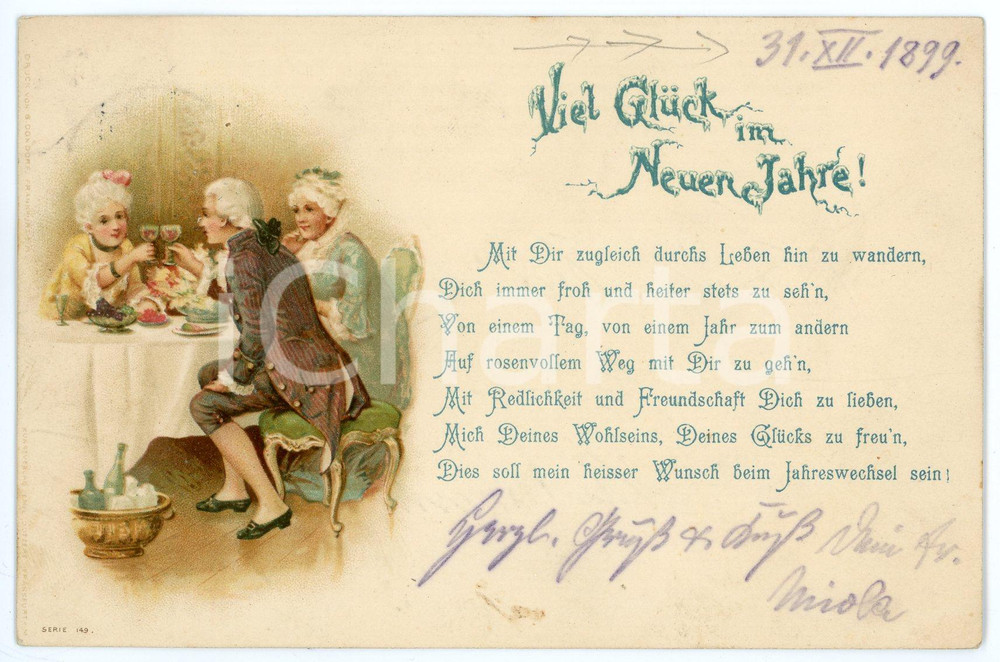 31. XII. 1899.
Viel Glück
im
Neuen Jahre!
Mit Dir zugleich durchs Leben hin zu wandern,
Dich immer froh und heiter stets zu seh'n,
Von einem Tag, von einem Jahr zum andern
Auf rosenvollem Weg mit Dir zu geh'n,
Mit Redlichkeit und Freundschaft Dich zu lieben,
Mich Deines Wohlseins, Deines Glücks zu freu'n,
Dies soll mein heisser Wunsch beim Jahreswechsel sein!
Herzl. Gruß & Kuß Dein
iCharta
SERIE 149.